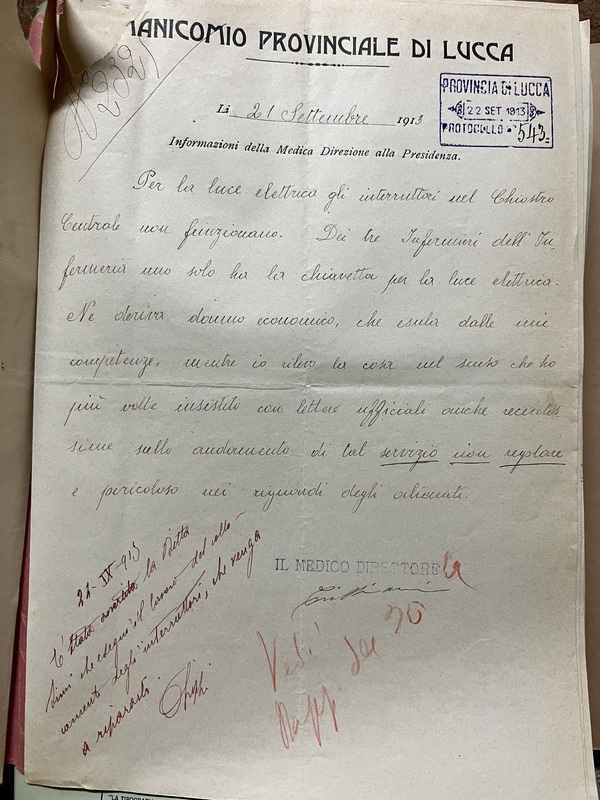 MANICOMIO PROVINCIALE DI LUCCA
PROVINCIA DI LUCCA
22 SET 1913
PROTOCOLLO 543
Li 21 Settembre 1913
Informazioni della Medica Direzione alla Presidenza.
Per la luce elettrica gli interruttori nel Chiostro
Centrale non funzionano. Dei tre Infermieri dell'In-
fermeria uno solo ha la chiavetta per la luce elettrica.
Ne deriva danno economico, che esula dalle mie
competenze, mentre io rilevo la cosa nel senso che ho
più volte insistito con lettere ufficiali anche recentis
sime sullo andamento di tal servizio non regolare
e pericoloso nei riguardi degli alienati.
IL MEDICO DIRETTORE
22-IX-913
È stata avvertita la Ditta
che eseguì il lavoro del collo-
camento degli interruttori, che venga
a ripararli.
Vedi
Rapp